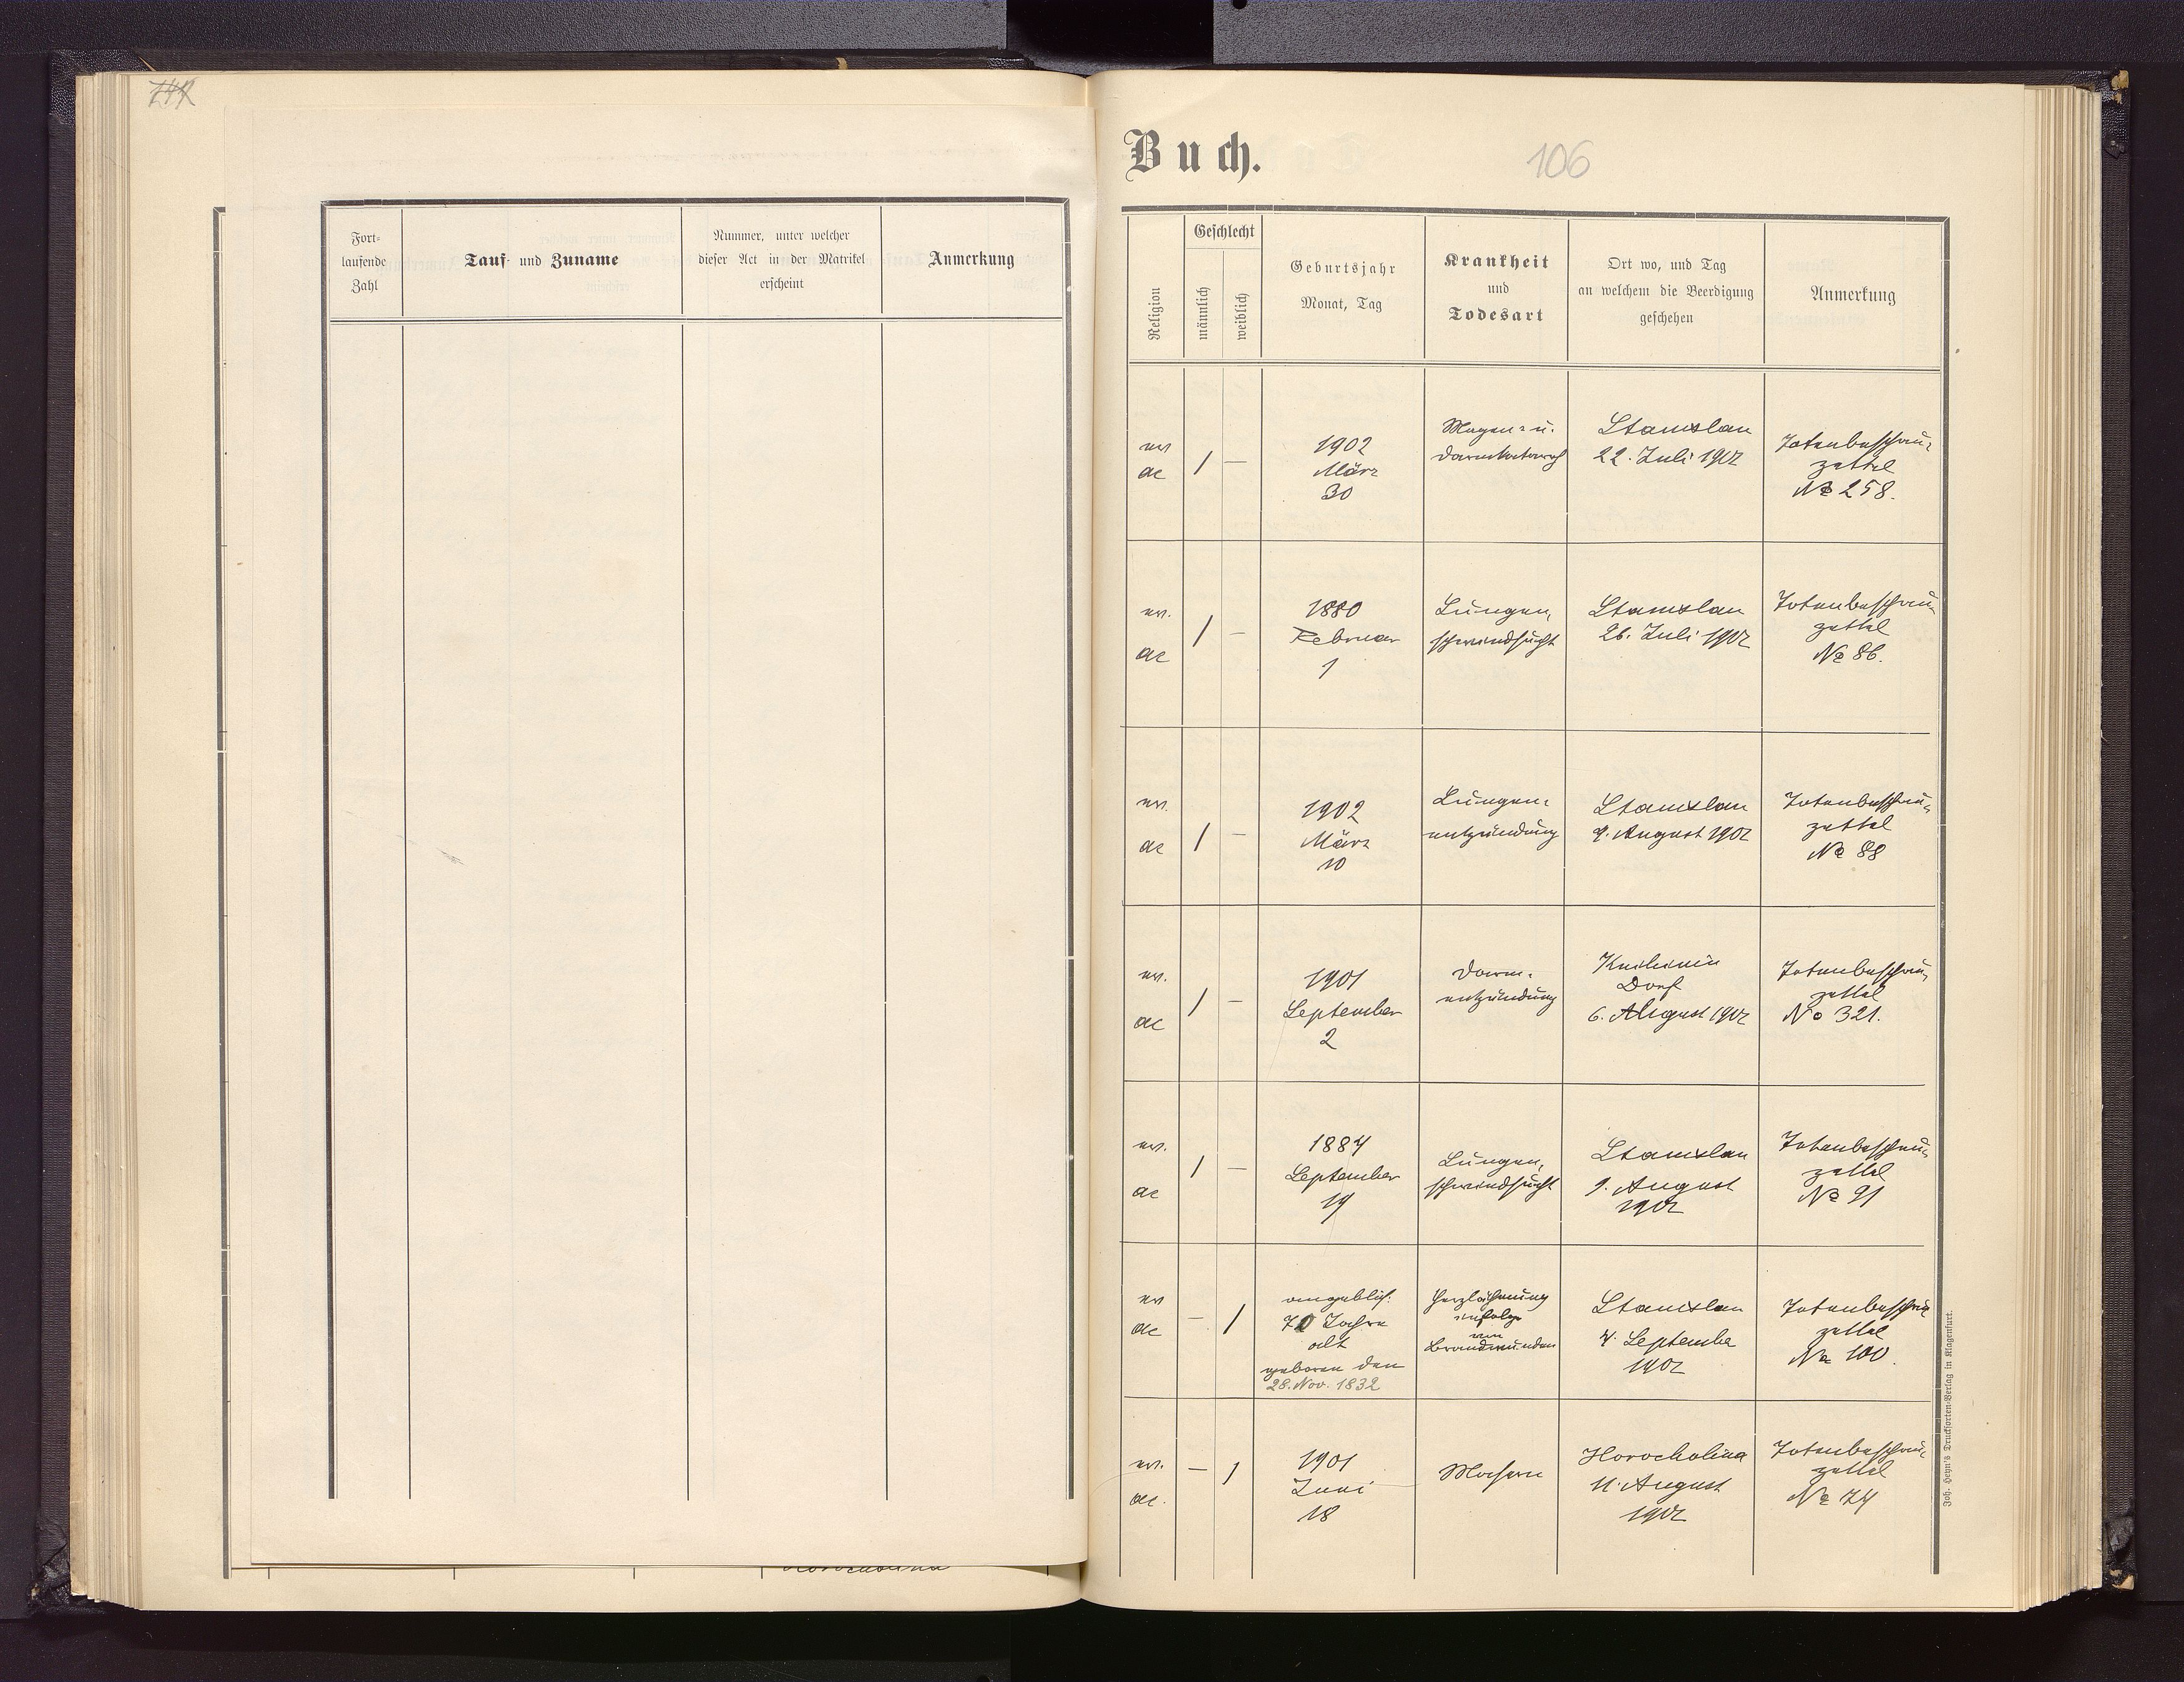 Fort-
laufende
Zahl
Tauf- und Zuname
Nummer, unter welcher
dieser Act in der Matrikel
erscheint
Anmerkung
Buch.
106
Religion
Geschlecht
männlich
weiblich
Geburtsjahr
Monat, Tag
Krankheit
und
Todesart
Ort wo, und Tag
an welchem die Beerdigung
geschehen
Anmerkung
ev.
ac
1
—
1902
März
30
Magen- u.
Darmkatarrh
Stanislau
22. Juli 1902
Totenbeschau-
zettel
No 258.
ev.
ac
1
—
1880
Februar
1
Lungen-
schwindsucht
Stanislau
26. Juli 1902
Totenbeschau-
zettel
No 86.
ev.
ac
1
—
1902
März
10
Lungen-
entzündung
Stanislau
4. August 1902
Totenbeschau-
zettel
No 88
ev.
ac
1
—
1901
September
2
Darm-
entzündung
Knihinin
Dorf
6. August 1902
Totenbeschau-
zettel
No 321.
ev.
ac
1
—
1884
September
19
Lungen-
schwindsucht
Stanislau
9. August
1902
Totenbeschau-
zettel
No 91
ev
ac
—
1
angeblich
70 Jahre
alt
geboren den
28. Nov. 1832
Herzlähmung
infolge
von
Brandwunden
Stanislau
4. Septembe
1902
Totenbeschau
zettel
No 100.
ev.
ac.
—
1
1901
Juni
18
Masern
Horocholina
11. August
1902
Totenbeschau-
zettel
No 74
Joh. Heyn's Drucksorten-Verlag in Klagenfurt.